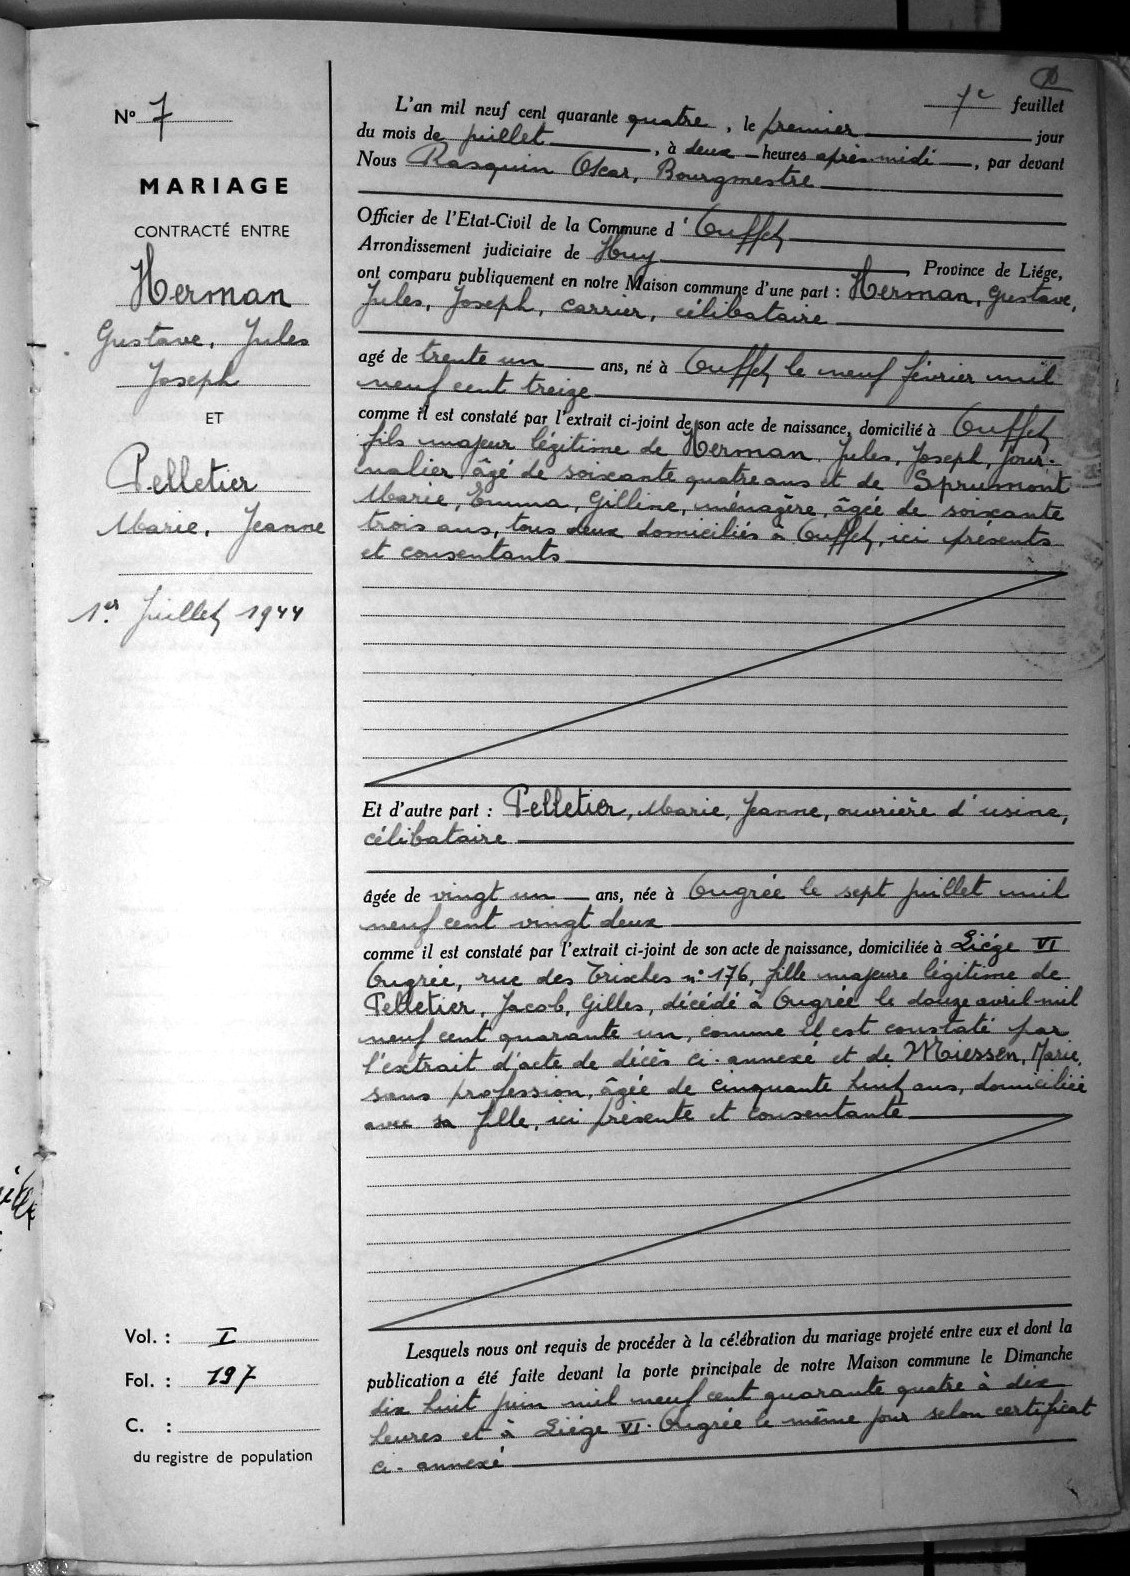 N° 7
MARIAGE
CONTRACTÉ ENTRE
Herman
Gustave, Jules
Joseph
ET
Pelletier
Marie, Jeanne
1er Juillet 1944
Vol. : I
Fol. : 197
C. :
du registre de population
7e feuillet
L'an mil neuf cent quarante quatre, le premier jour
du mois de juillet, à deux heures après midi, par devant
Nous Rasquin Oscar, Bourgmestre
Officier de l'Etat-Civil de la Commune d'Ouffet
Arrondissement judiciaire de Huy, Province de Liége,
ont comparu publiquement en notre Maison commune d'une part : Herman, Gustave,
Jules, Joseph, carrier, célibataire
agé de trente un ans, né à Ouffet le neuf février mil
neuf cent treize
comme il est constaté par l'extrait ci-joint de son acte de naissance, domicilié à Ouffet
fils majeur légitime de Herman, Jules, Joseph, jour-
nalier, âgé de soixante quatre ans et de Sprumont
Marie, Emma, Gilline, ménagère, âgée de soixante
trois ans, tous deux domiciliés à Ouffet, ici présents
et consentants
Et d'autre part : Pelletier, Marie, Jeanne, ouvrière d'usine,
célibataire
âgée de vingt un ans, née à Ougrée le sept juillet mil
neuf cent vingt deux
comme il est constaté par l'extrait ci-joint de son acte de naissance, domiciliée à Liége VI
Ougrée, rue des Trixhes n° 176, fille majeure légitime de
Pelletier, Jacob, Gilles, décédé à Ougrée le douze avril mil
neuf cent quarante un, comme il est constaté par
l'extrait d'acte de décès ci-annexé et de Miessen, Marie
sans profession, âgée de cinquante huit ans, domiciliée
avec sa fille, ici présente et consentante
Lesquels nous ont requis de procéder à la célébration du mariage projeté entre eux et dont la
publication a été faite devant la porte principale de notre Maison commune le Dimanche
dix huit juin mil neuf cent quarante quatre à dix
heures et à Liége VI-Ougrée le même jour selon certificat
ci-annexé